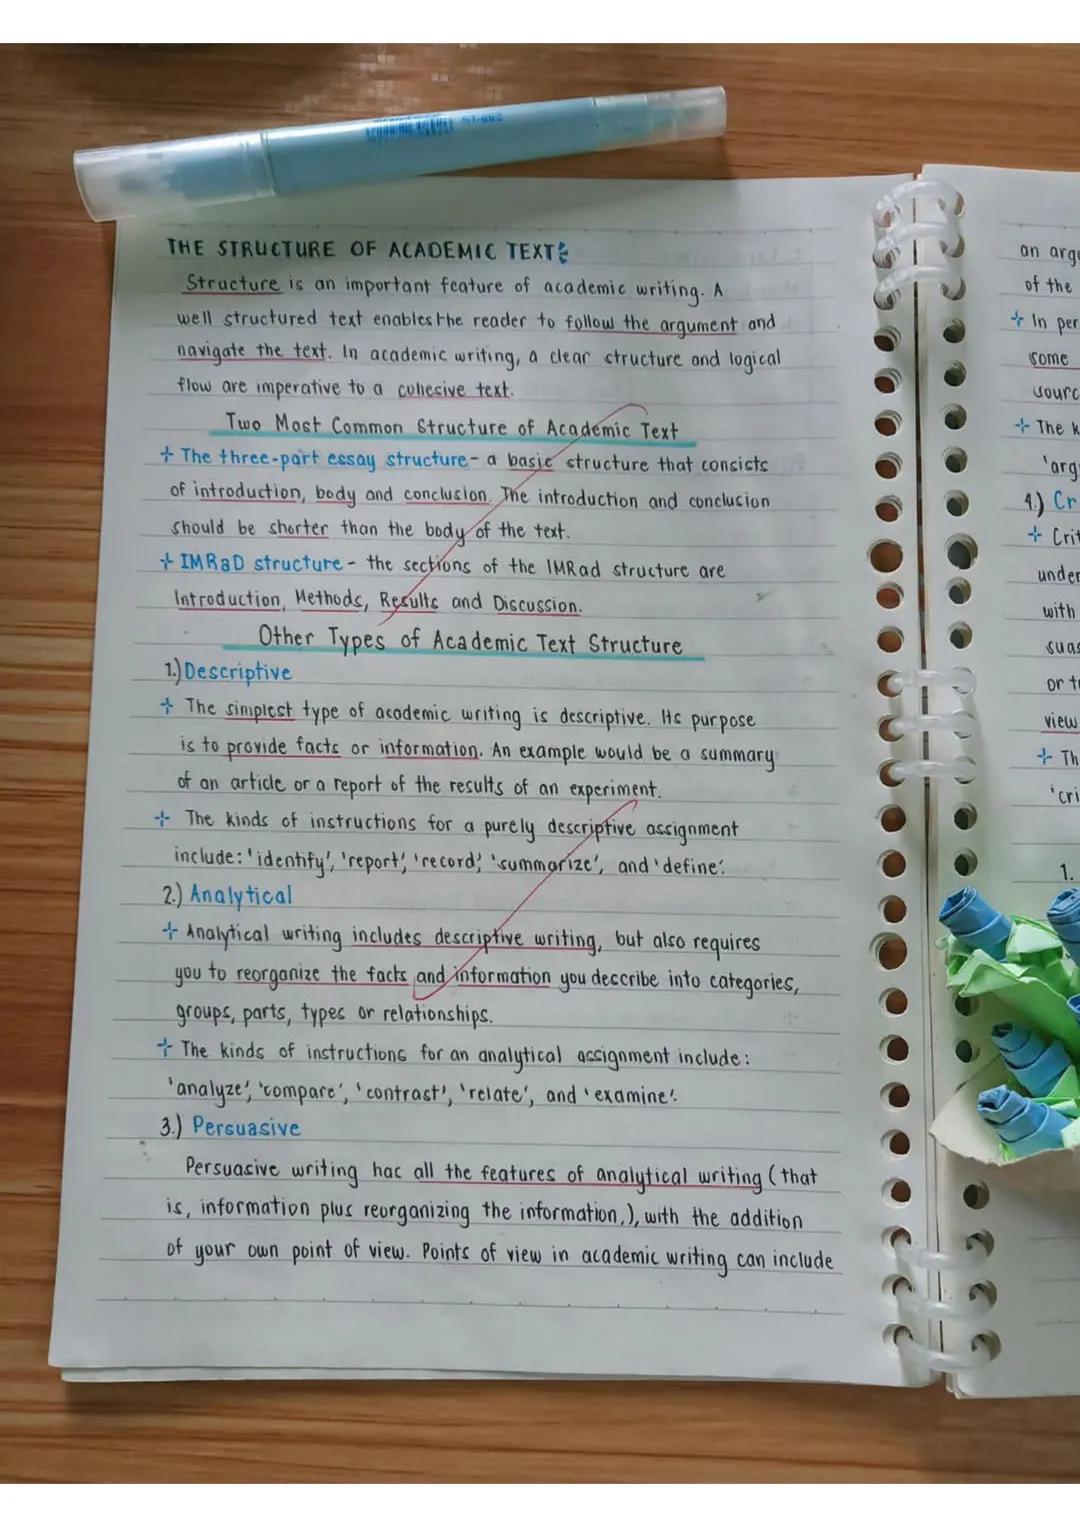 ST-002
THE STRUCTURE OF ACADEMIC TEXT
Structure is an important feature of academic writing. A
well structured text enables the reader to follow the argument and
navigate the text. In academic writing, a clear structure and logical
flow are imperative to a cohesive text.
Two Most Common Structure of Academic Text
+ The three-part essay structure - a basic structure that consists
of introduction, body and conclusion. The introduction and conclusion
should be shorter than the body of the text.
+ IMRaD structure - the sections of the IMRad structure are
Introduction, Methods, Results and Discussion.
Other Types of Academic Text Structure
1.) Descriptive
+ The simplest type of academic writing is descriptive. Its purpose
is to provide facts or information. An example would be a summary
of an article or a report of the results of an experiment.
+ The kinds of instructions for a purely descriptive assignment
include: 'identify', 'report', 'record', 'summarize', and 'define'.
2.) Analytical
+ Analytical writing includes descriptive writing, but also requires
you to reorganize the facts and information you describe into categories,
groups, parts, types or relationships.
+ The kinds of instructions for an analytical assignment include:
'analyze', 'compare', 'contrast', 'relate', and 'examine'.
3.) Persuasive
Persuasive writing has all the features of analytical writing (that
is, information plus reorganizing the information,), with the addition
of your own point of view. Points of view in academic writing can include
an argu
of the
+ In per
some
sourc
+ The k
'arg
4.) Cr
+ Crit
under
with
suas
or t
view
+ Th
'cri
1.